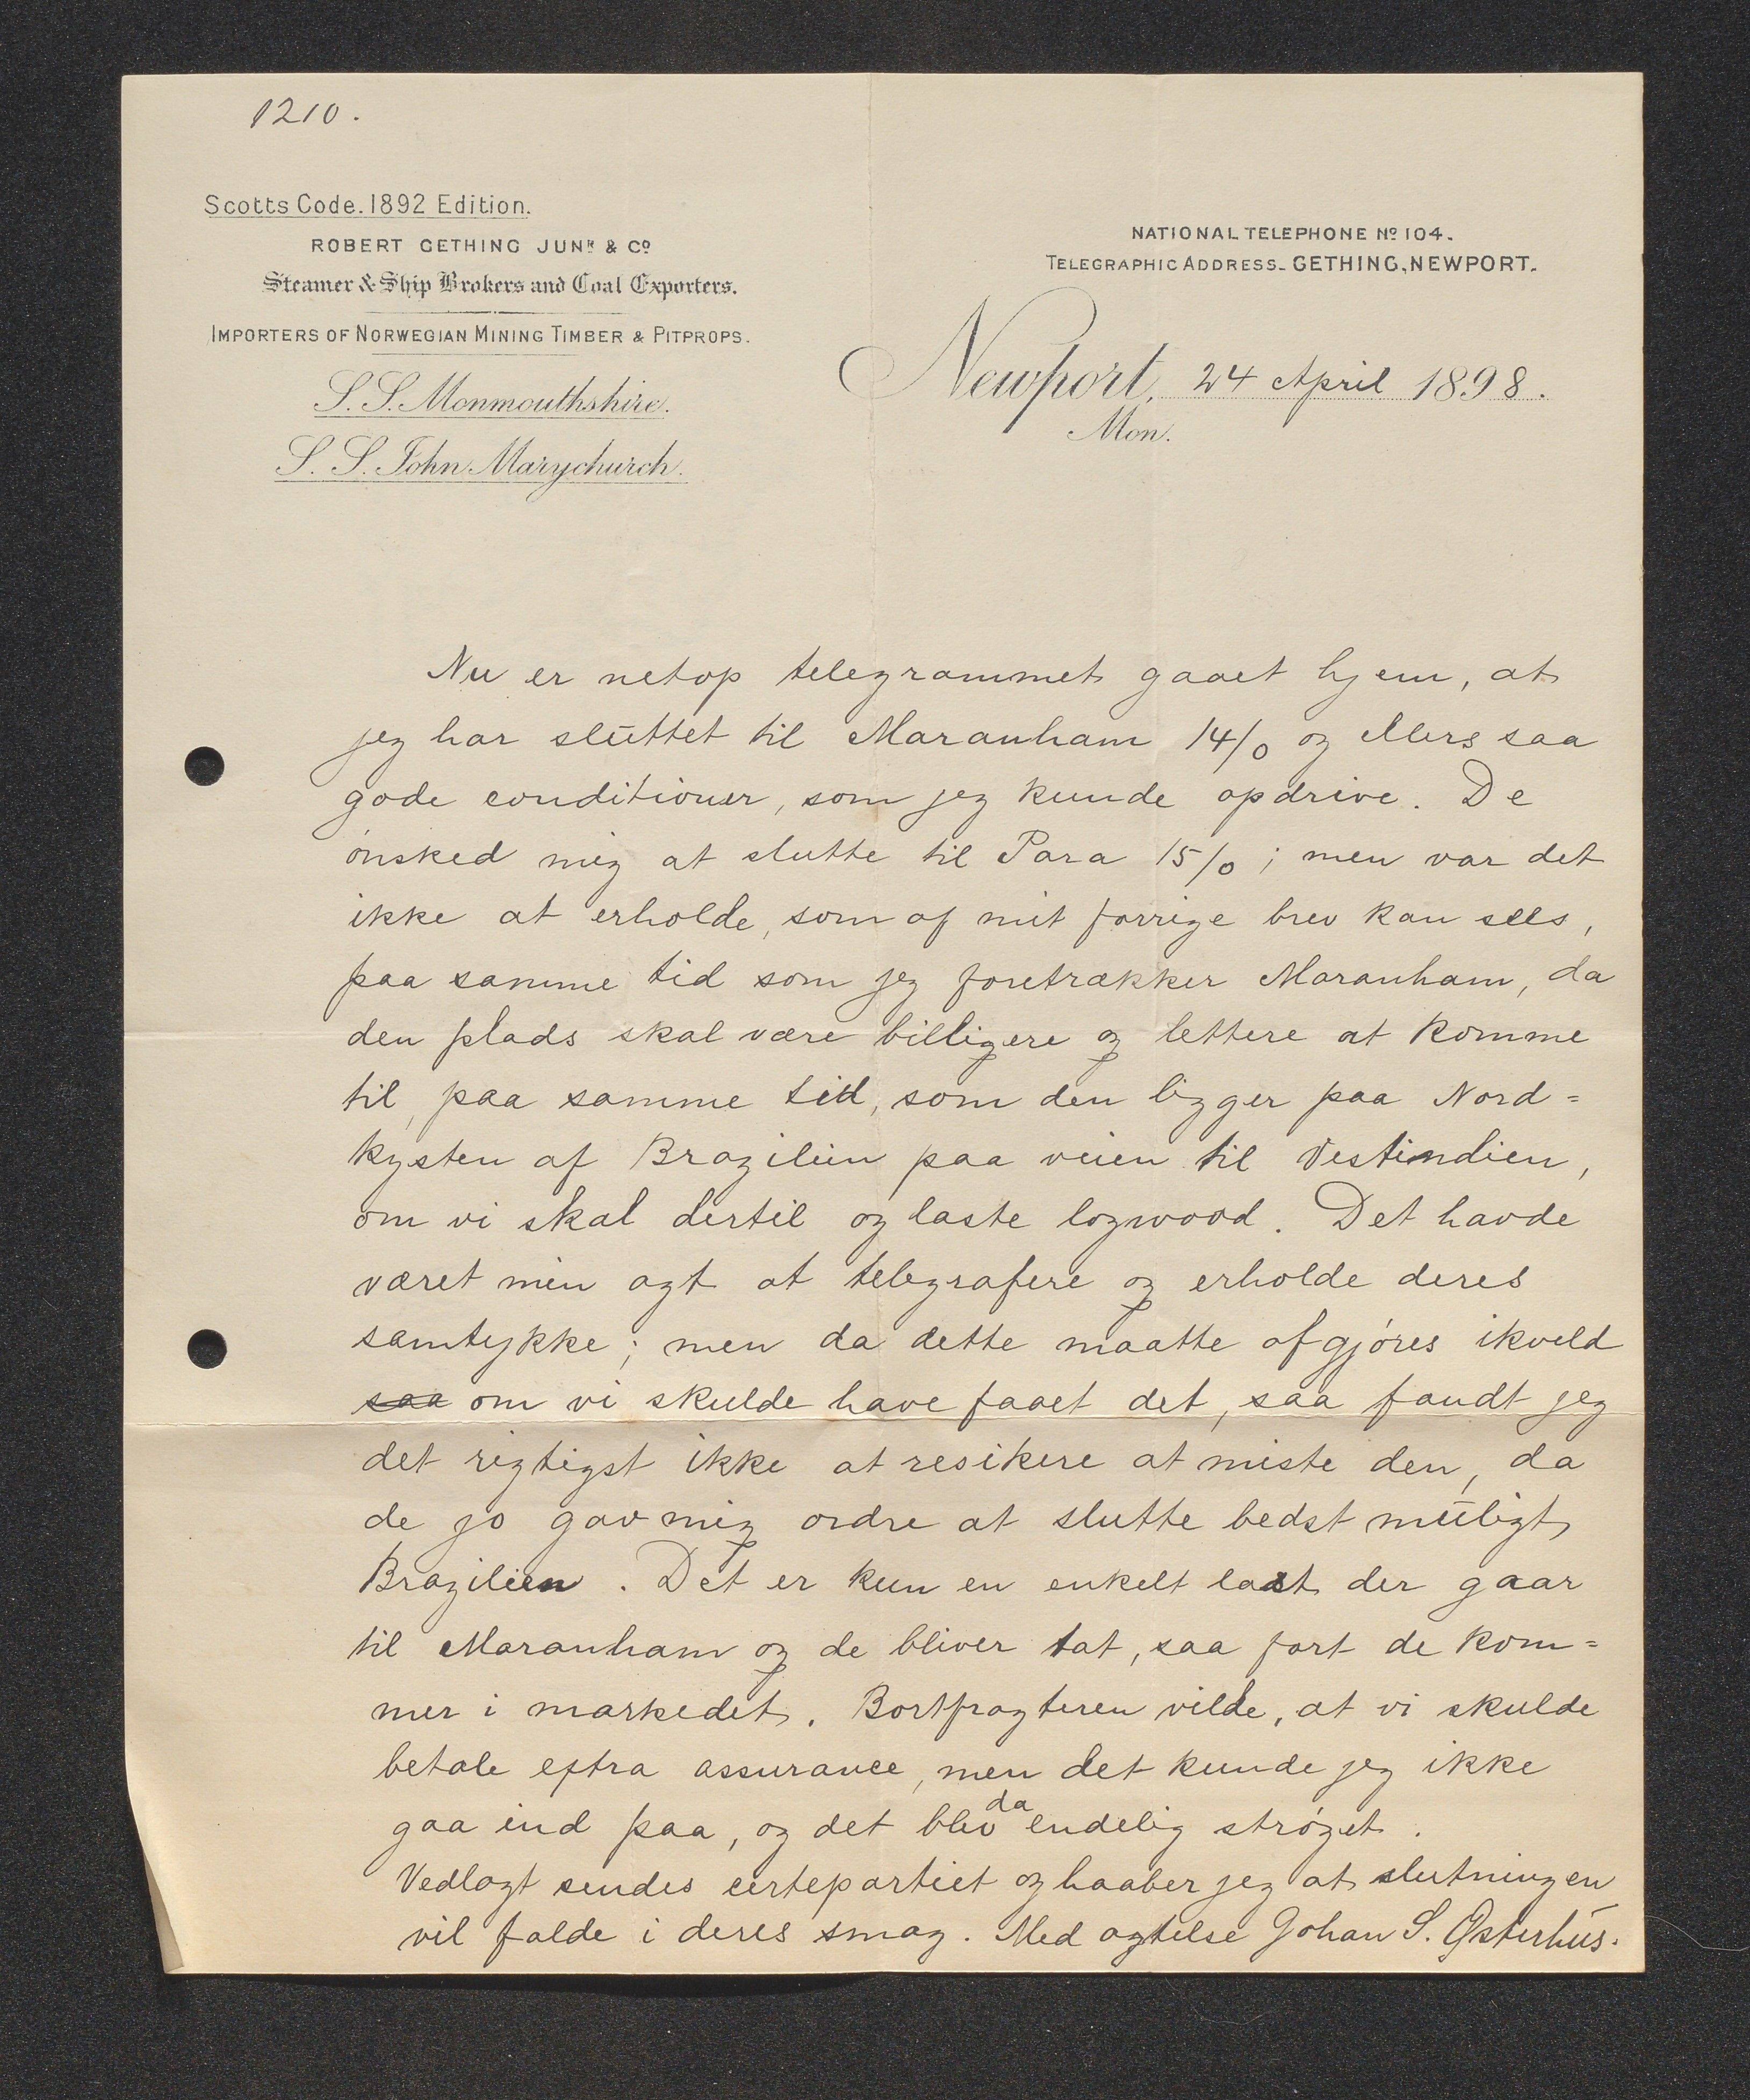 1210.
Scotts Code. 1892 Edition.
ROBERT GETHING JUNR & CO
Steamer & Ship Brokers and Coal Exporters.
IMPORTERS OF NORWEGIAN MINING TIMBER & PITPROPS.
S.S. Monmouthshire.
S.S. John Marychurch.
NATIONAL TELEPHONE No 104.
TELEGRAPHIC ADDRESS. GETHING, NEWPORT.
Newport, 24 April 1898.
Mon.
Nu er netop telegrammet gaaet hjem, at
jeg har sluttet til Maranham 14/0 og ellers saa
gode conditioner, som jeg kunde opdrive. De
ønsked mig at slutte til Para 15/0; men var det
ikke at erholde, som af mit forrige brev kan sees,
paa samme tid som jeg foretrækker Maranham, da
den plads skal være billigere og lettere at komme
til, paa samme tid, som den ligger paa Nord=
kysten af Brazilien paa veien til Vestindien,
om vi skal dertil og laste logwood. Det havde
været min agt at telegrafere og erholde deres
samtykke; men da dette maatte afgjøres ikveld
saa om vi skulde have faaet det, saa fandt jeg
det rigtigst ikke at resikere at miste den, da
de jo gav mig ordre at slutte bedst muligt
Brazilien. Det er kun en enkelt last der gaar
til Maranham og de bliver tat, saa fort de kom=
mer i markedet. Bortfragteren vilde, at vi skulde
betale extra assurance, men det kunde jeg ikke
gaa ind paa, og det blev da endelig strøget.
Vedlagt sendes certepartiet og haaber jeg at slutningen
vil falde i deres smag. Med agtelse Johan S. Østerhus.